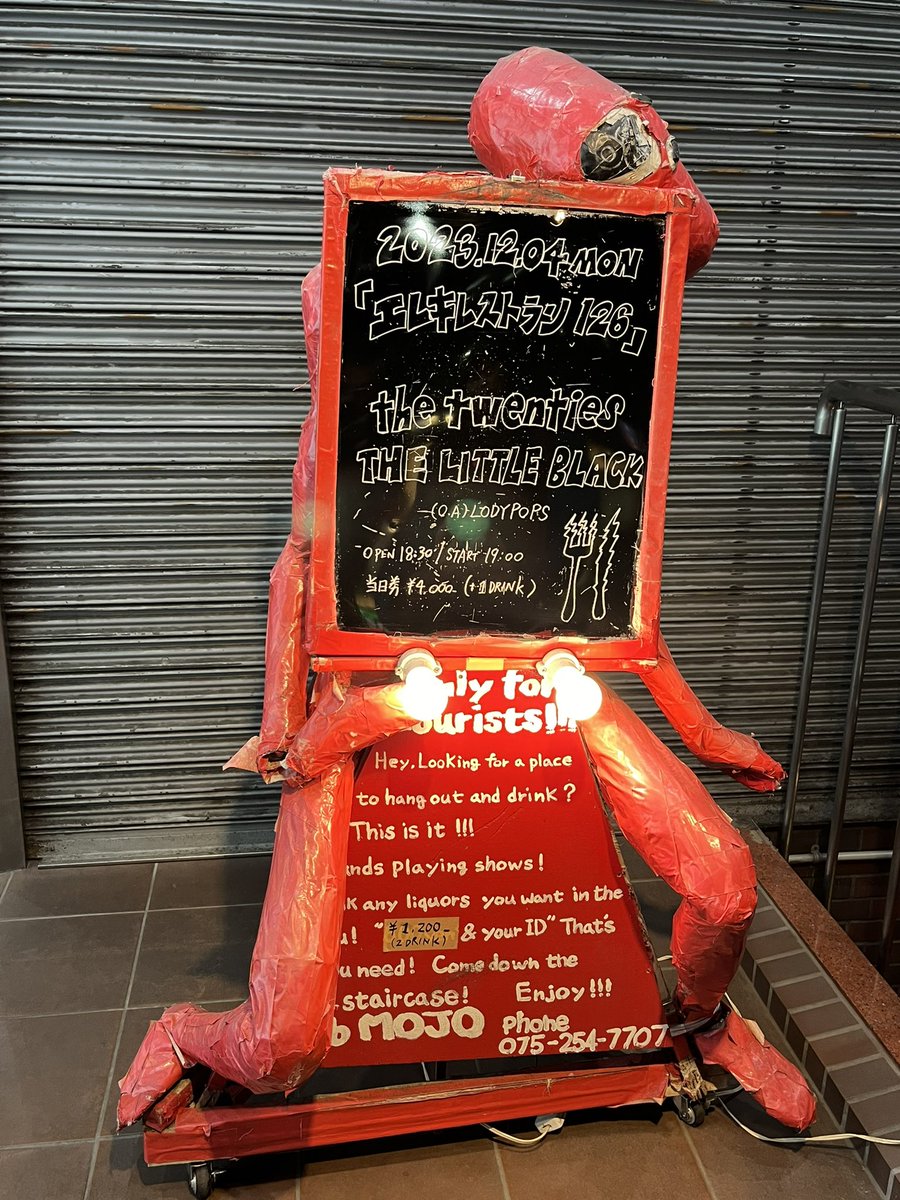 2023.12.04.MON
「エレキレストラン 126」
the twenties
THE LITTLE BLACK
(O.A) LODYPOPS
OPEN 18:30 / START 19:00
当日券 ¥4,000- (+1DRINK)
for
!!!
Hey, Looking for a place
to hang out and drink?
This is it !!!
playing shows!
any liquors you want in the
! "¥1,200- & your ID" That's
(2 DRINK)
need! Come down the
staircase! Enjoy!!!
MOJO Phone
075-254-7707